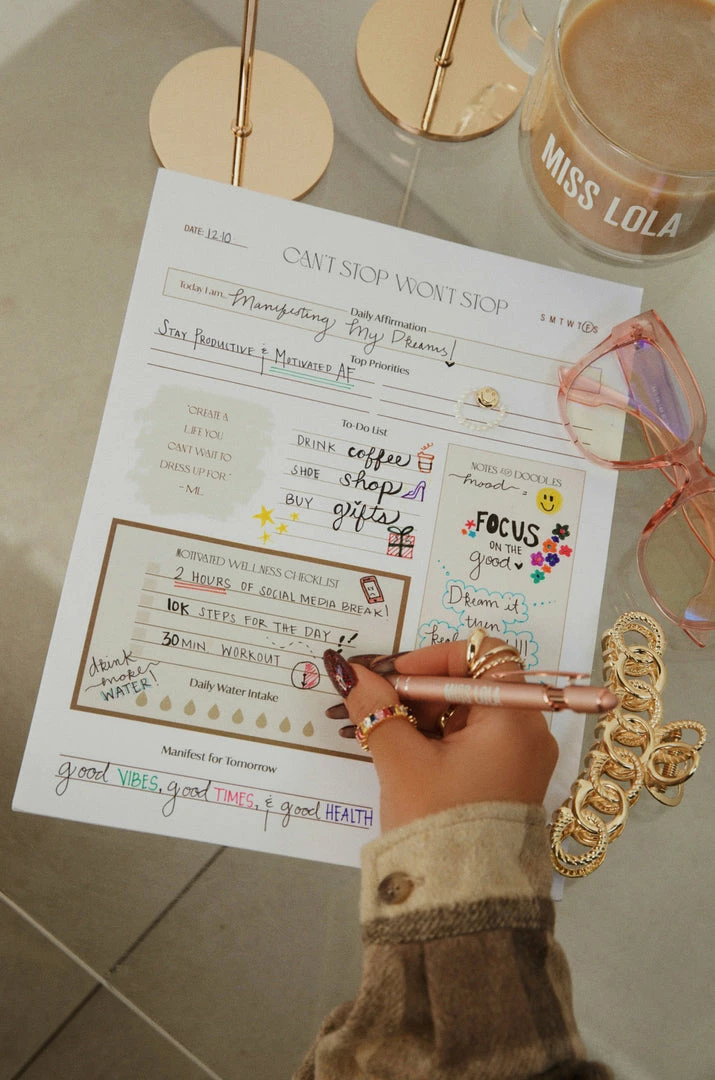 MISS LOLA
DATE: 12.10
CAN'T STOP WON'T STOP
S M T W T F S
Daily Affirmation
Today I am... Manifesting My Dreams!
Top Priorities
STAY PRODUCTIVE & MOTIVATED AF
"CREATE A
LIFE YOU
CAN'T WAIT TO
DRESS UP FOR."
- ML
To-Do List
DRINK coffee
SHOE shop
BUY gifts
NOTES & DOODLES
mood =
FOCUS
ON THE
good
Dream it
then
MOTIVATED WELLNESS CHECKLIST
2 HOURS OF SOCIAL MEDIA BREAK!
10K STEPS FOR THE DAY !!
30 MIN WORKOUT
drink
more
WATER!
Daily Water Intake
MISS LOLA
Manifest for Tomorrow
good VIBES, good TIMES, & good HEALTH